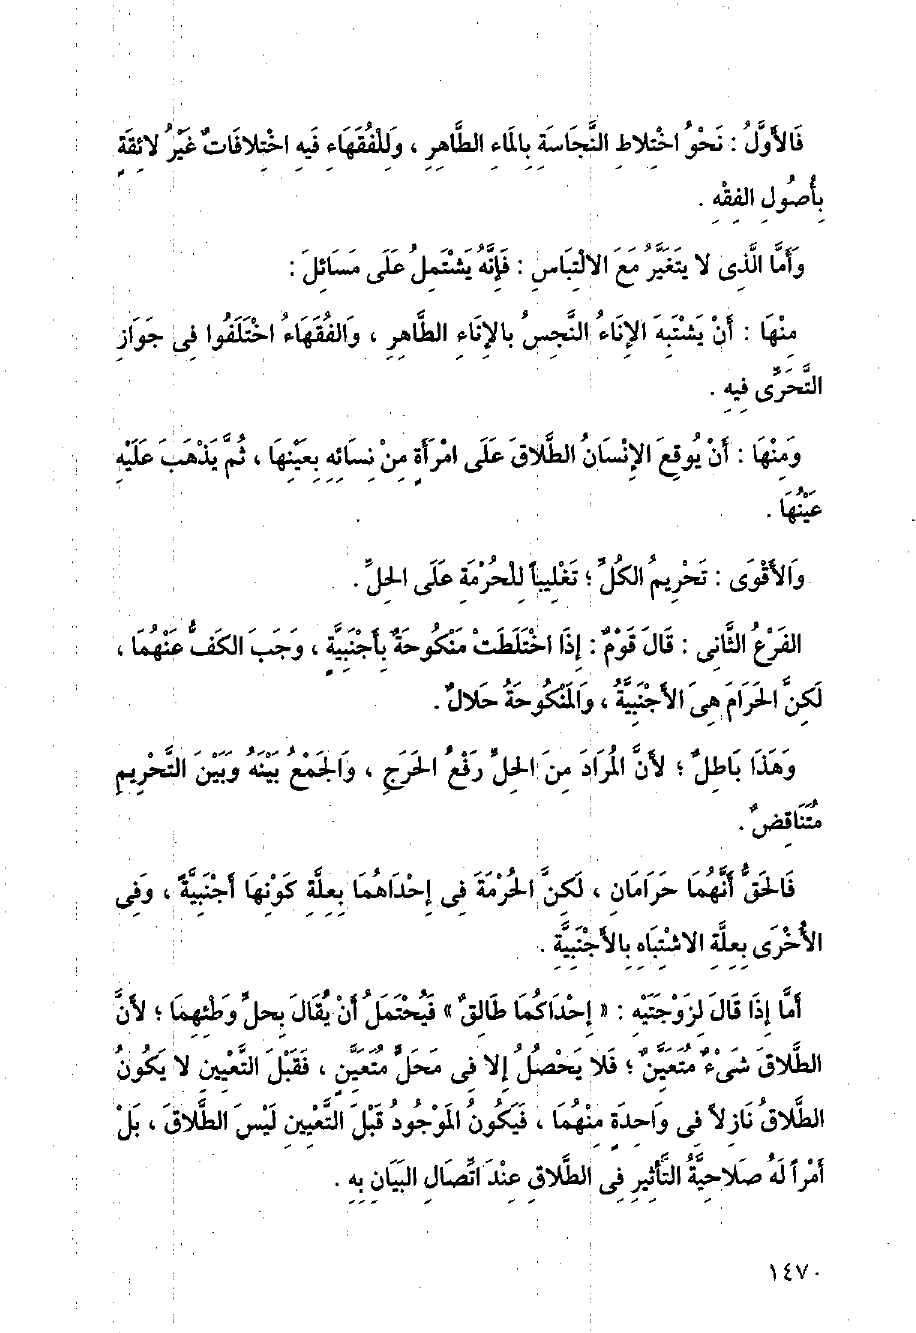 فَالأَوَّلُ : نَحْوُ اخْتِلاطِ النَّجَاسَةِ بِالْمَاءِ الطَّاهِرِ ، وَلِلْفُقَهَاءِ فِيهِ اخْتِلافَاتٌ غَيْرُ لائِقَةٍ
بِأُصُولِ الفِقْهِ .
وَأَمَّا الَّذِى لا يَتَغَيَّرُ مَعَ الالْتِبَاسِ : فَإِنَّهُ يَشْتَمِلُ عَلَى مَسَائِلَ :
مِنْهَا : أَنْ يَشْتَبِهَ الإِنَاءُ النَّجِسُ بِالإِنَاءِ الطَّاهِرِ ، وَالفُقَهَاءُ اخْتَلَفُوا فِى جَوَازِ
التَّحَرِّى فِيهِ .
وَمِنْهَا : أَنْ يُوقِعَ الإِنْسَانُ الطَّلاقَ عَلَى امْرَأَةٍ مِنْ نِسَائِهِ بِعَيْنِهَا ، ثُمَّ يَذْهَبَ عَلَيْهِ
عَيْنُهَا .
وَالأَقْوَى : تَحْرِيمُ الكُلِّ ؛ تَغْلِيباً لِلْحُرْمَةِ عَلَى الحِلِّ .
الفَرْعُ الثَّانِى : قَالَ قَوْمٌ : إِذَا اخْتَلَطَتْ مَنْكُوحَةٌ بِأَجْنَبِيَّةٍ ، وَجَبَ الكَفُّ عَنْهُمَا ،
لَكِنَّ الحَرَامَ هِىَ الأَجْنَبِيَّةُ ، وَالْمَنْكُوحَةُ حَلالٌ .
وَهَذَا بَاطِلٌ ؛ لأَنَّ الْمُرَادَ مِنَ الحِلِّ رَفْعُ الحَرَجِ ، وَالجَمْعُ بَيْنَهُ وَبَيْنَ التَّحْرِيمِ
مُتَنَاقِضٌ .
فَالحَقُّ أَنَّهُمَا حَرَامَانِ ، لَكِنَّ الحُرْمَةَ فِى إِحْدَاهُمَا بِعِلَّةِ كَوْنِهَا أَجْنَبِيَّةً ، وَفِى
الأُخْرَى بِعِلَّةِ الاشْتِبَاهِ بِالأَجْنَبِيَّةِ .
أَمَّا إِذَا قَالَ لِزَوْجَتَيْهِ : « إِحْدَاكُمَا طَالِقٌ » فَيُحْتَمَلُ أَنْ يُقَالَ بِحِلِّ وَطْئِهِمَا ؛ لأَنَّ
الطَّلاقَ شَىْءٌ مُتَعَيِّنٌ ؛ فَلا يَحْصُلُ إِلا فِى مَحَلٍّ مُتَعَيِّنٍ ، فَقَبْلَ التَّعْيِينِ لا يَكُونُ
الطَّلاقُ نَازِلاً فِى وَاحِدَةٍ مِنْهُمَا ، فَيَكُونُ الْمَوْجُودُ قَبْلَ التَّعْيِينِ لَيْسَ الطَّلاقَ ، بَلْ
أَمْراً لَهُ صَلاحِيَّةُ التَّأْثِيرِ فِى الطَّلاقِ عِنْدَ اتِّصَالِ البَيَانِ بِهِ .
١٤٧٠